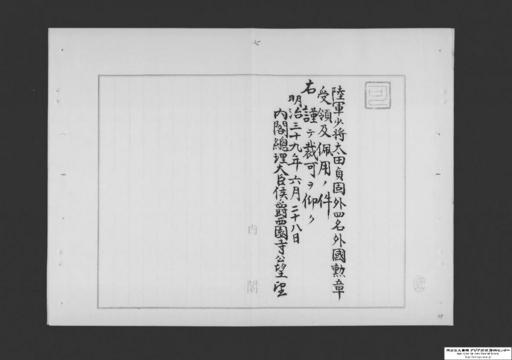 陸軍少将太田貞固外四名外國勲章
受領及佩用ノ件
右謹テ裁可ヲ仰ク
明治三十九年六月二十八日
内閣總理大臣侯爵西園寺公望
内閣